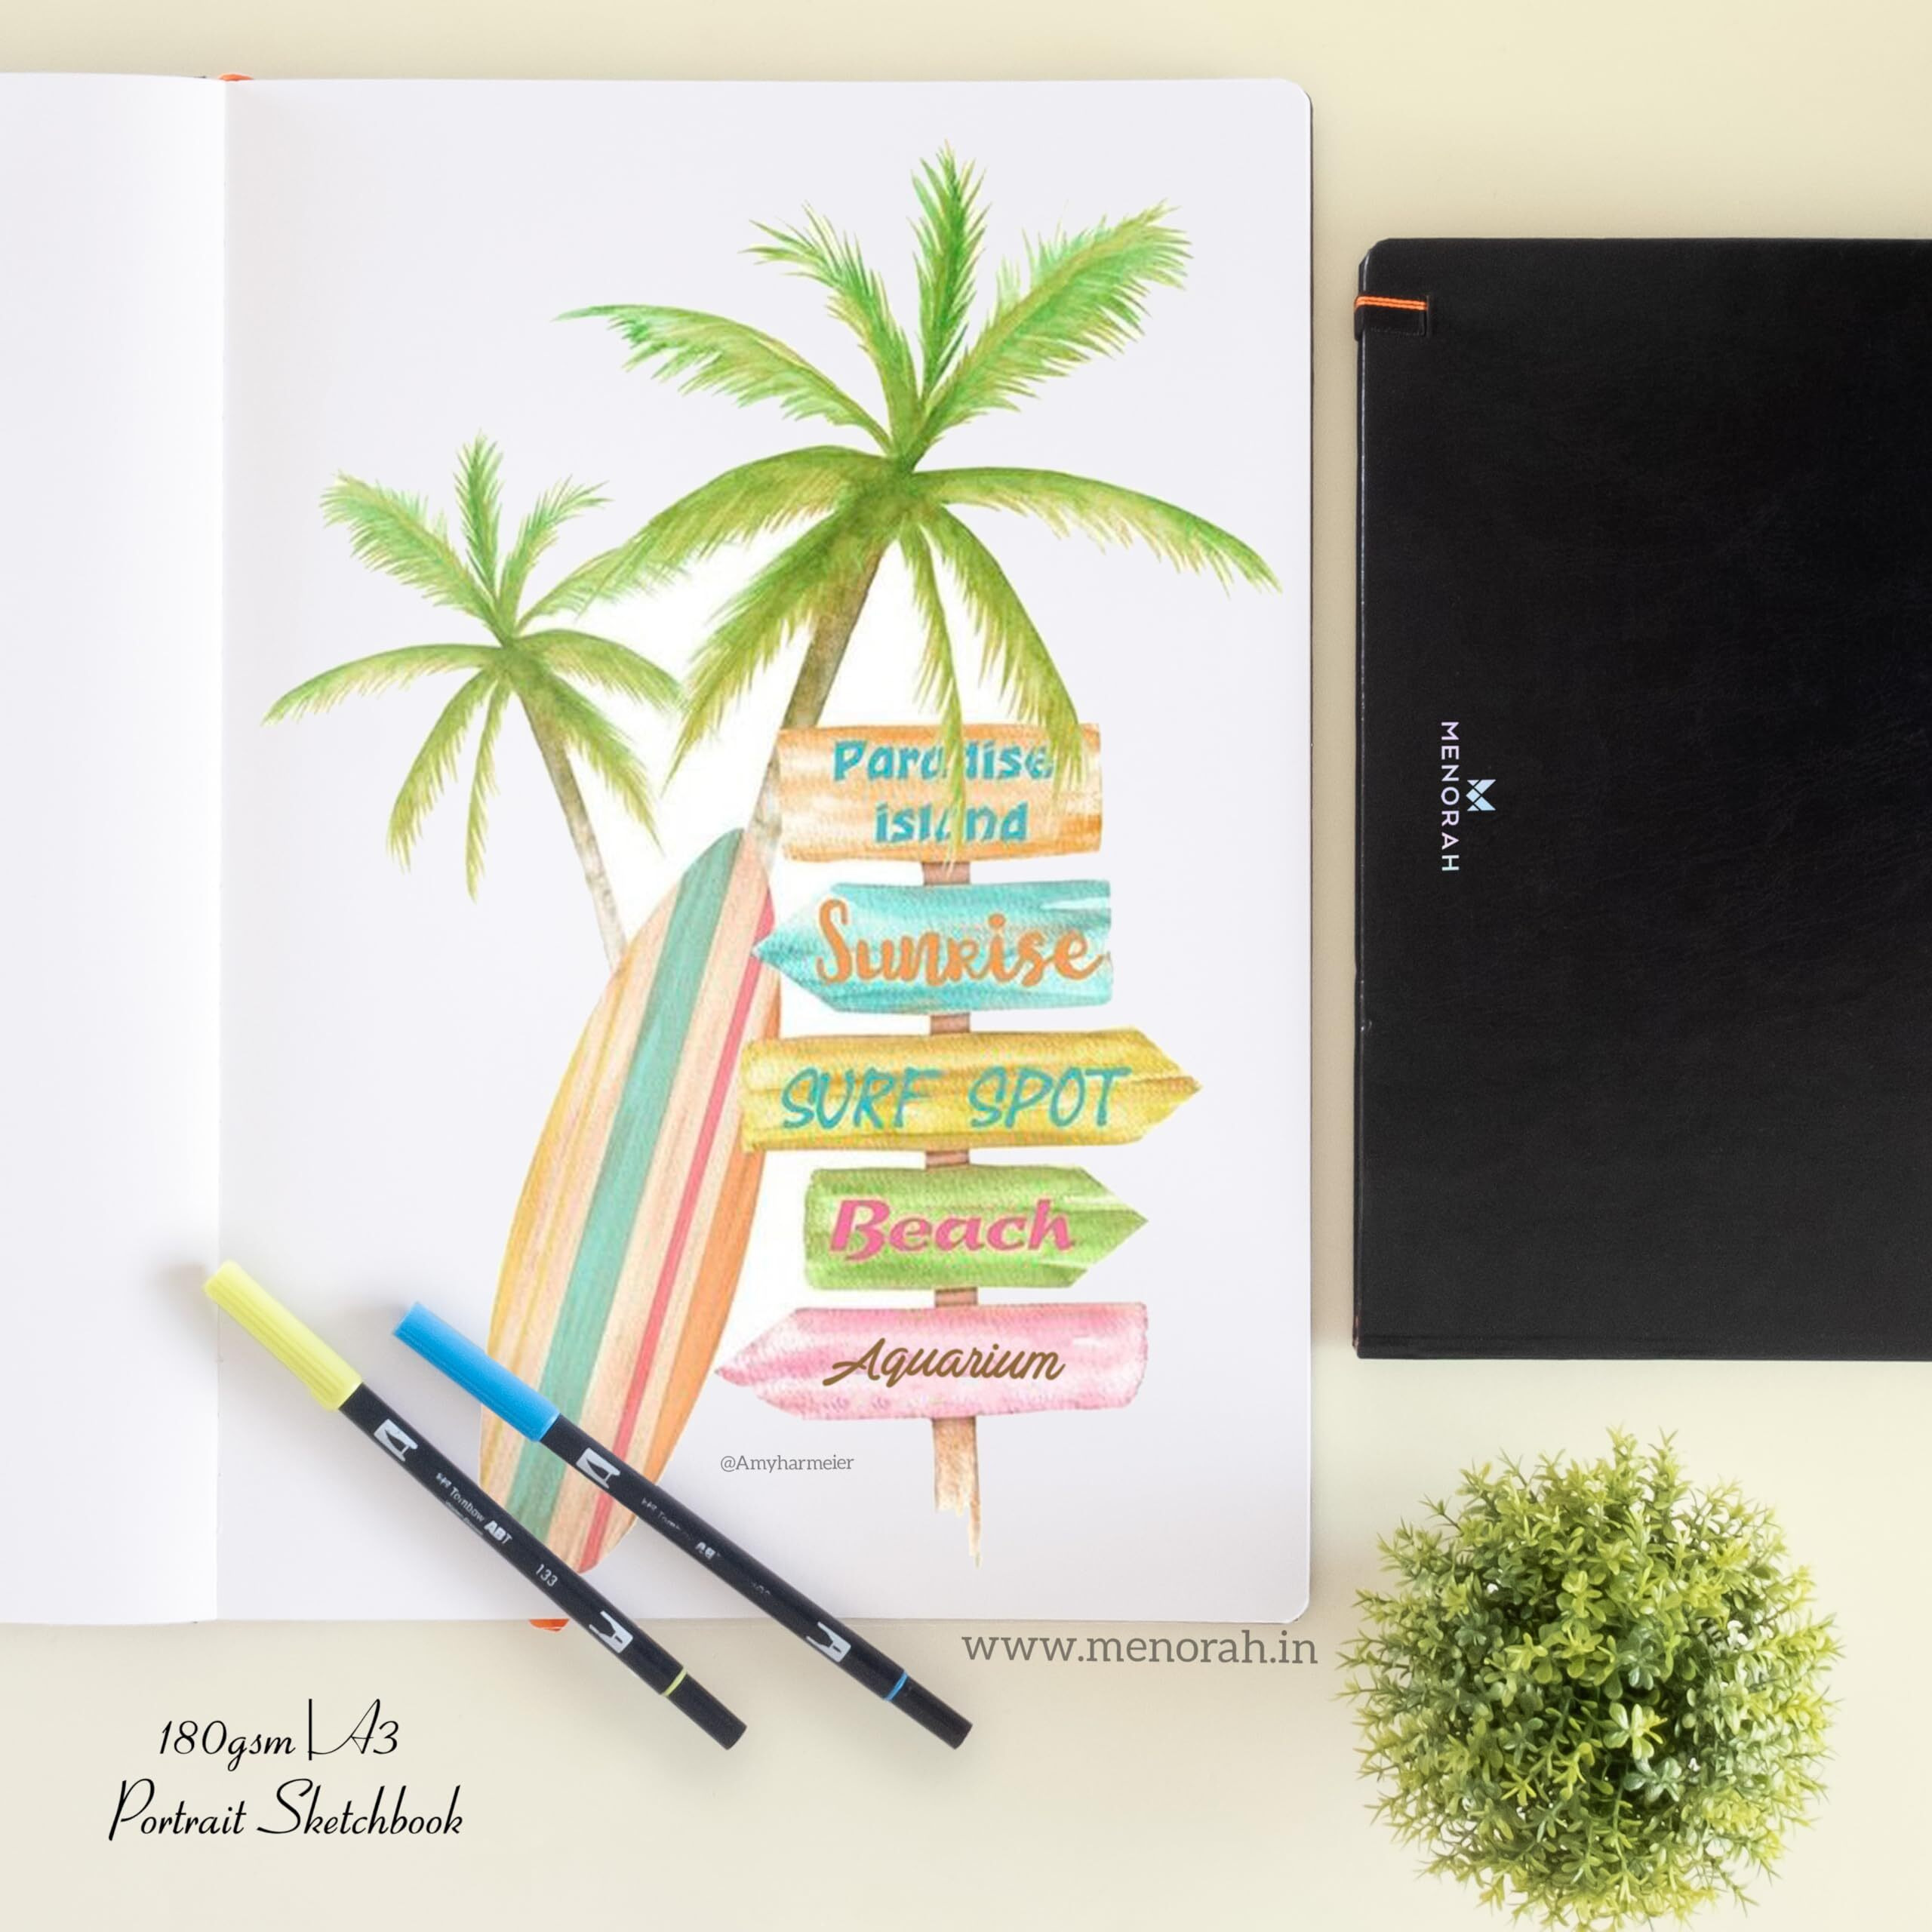 Paradise
island
Sunrise
SURF SPOT
Beach
Aquarium
@Amyharmeier
MENORAH
Tombow ABT
133
www.menorah.in
180gsm | A3
Portrait Sketchbook